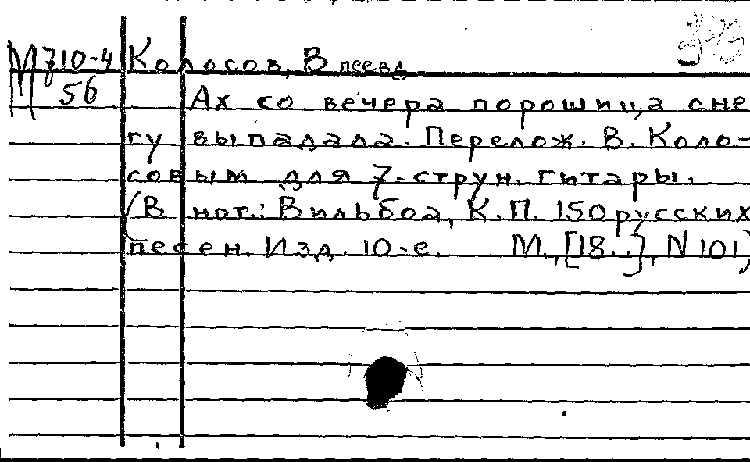 М 710-4 Колосов, В псевд
56 Ах со вечера порошица сне
гу выпадала. Перелож. В. Коло-
совым для 7-струн. гитары.
(В нот.: Вильбоа, К.П. 150 русских
песен. Изд. 10-е. М., [18..], N 101)